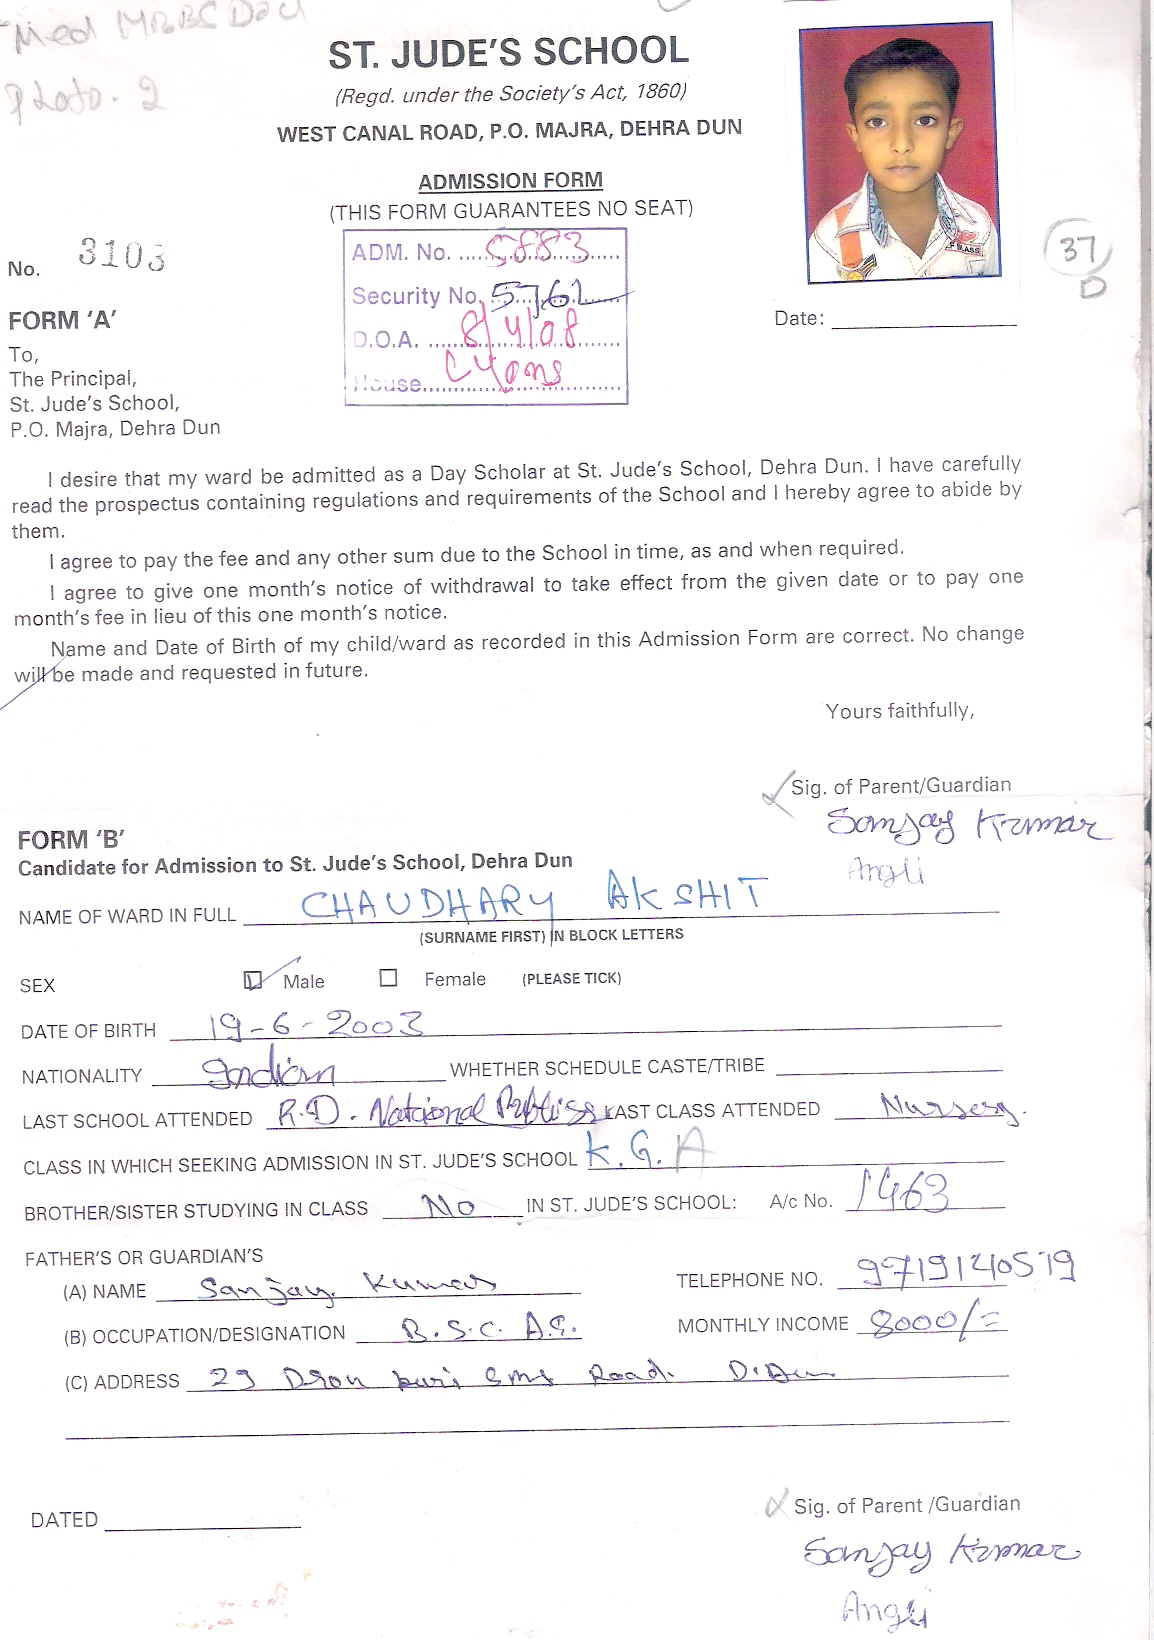 Med
Photo. 2
ST. JUDE'S SCHOOL
(Regd. under the Society's Act, 1860)
WEST CANAL ROAD, P.O. MAJRA, DEHRA DUN
ADMISSION FORM
(THIS FORM GUARANTEES NO SEAT)
No. 3103
ADM. No. 5883
Security No. 5762
D.O.A. 8/4/08
House Lyons
37
D
Date:
FORM 'A'
To,
The Principal,
St. Jude's School,
P.O. Majra, Dehra Dun
I desire that my ward be admitted as a Day Scholar at St. Jude's School, Dehra Dun. I have carefully
read the prospectus containing regulations and requirements of the School and I hereby agree to abide by
them.
I agree to pay the fee and any other sum due to the School in time, as and when required.
I agree to give one month's notice of withdrawal to take effect from the given date or to pay one
month's fee in lieu of this one month's notice.
Name and Date of Birth of my child/ward as recorded in this Admission Form are correct. No change
will be made and requested in future.
Yours faithfully,
Sig. of Parent/Guardian
Sanjay Kumar
FORM 'B'
Candidate for Admission to St. Jude's School, Dehra Dun
NAME OF WARD IN FULL CHAUDHARY AKSHIT
(SURNAME FIRST) IN BLOCK LETTERS
SEX Male Female (PLEASE TICK)
DATE OF BIRTH 19-6-2003
NATIONALITY Indian WHETHER SCHEDULE CASTE/TRIBE
LAST SCHOOL ATTENDED R.D. National LAST CLASS ATTENDED Nursery.
CLASS IN WHICH SEEKING ADMISSION IN ST. JUDE'S SCHOOL K.G. A
BROTHER/SISTER STUDYING IN CLASS No IN ST. JUDE'S SCHOOL: A/c No. 1463
FATHER'S OR GUARDIAN'S
(A) NAME Sanjay Kumar TELEPHONE NO. 9719140519
(B) OCCUPATION/DESIGNATION B.S.C. AG. MONTHLY INCOME 8000/=
(C) ADDRESS 29 Dron puri Road. D.Dun
DATED
Sig. of Parent /Guardian
Sanjay Kumar